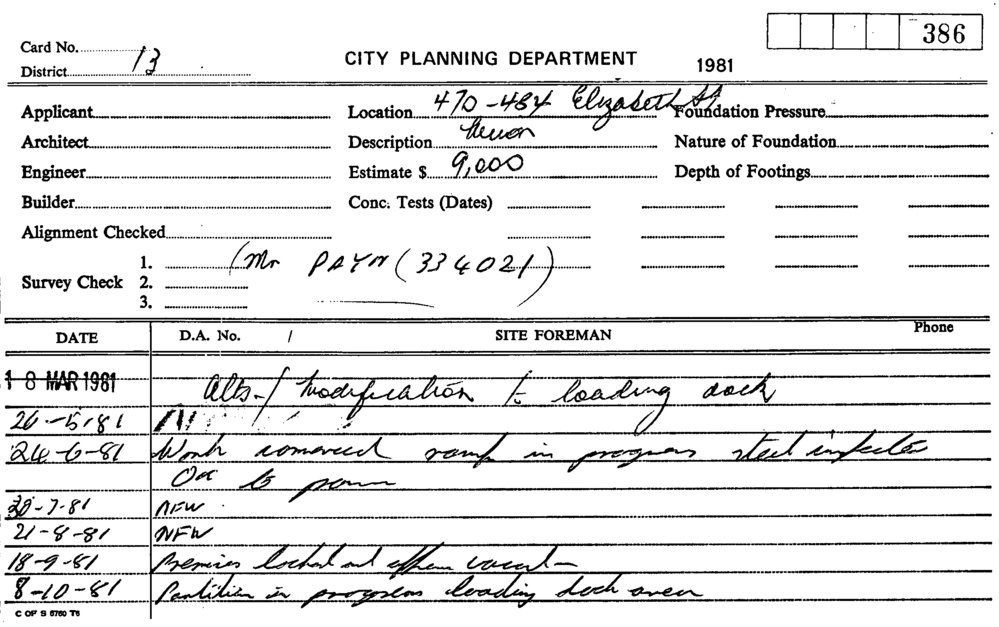 386
Card No.
District 13
CITY PLANNING DEPARTMENT
1981
Applicant
Location 470-484 Elizabeth St
Foundation Pressure
Architect
Description
Nature of Foundation
Engineer
Estimate $ 9,000
Depth of Footings
Builder
Conc. Tests (Dates)
Alignment Checked
Survey Check
1. (Mr PAYN (334021)
2.
3.
DATE D.A. No. / SITE FOREMAN Phone
18 MAR 1981 Alts-/ Modification to loading dock
26-5-81
24-6-81 Work comenced ramp in progress steel inspected
OK to pour
20-7-81 NFW
21-8-81 NFW
18-9-81 Premises locked and vacant
8-10-81 Partition in progress loading dock area
C OF S 6760 T6